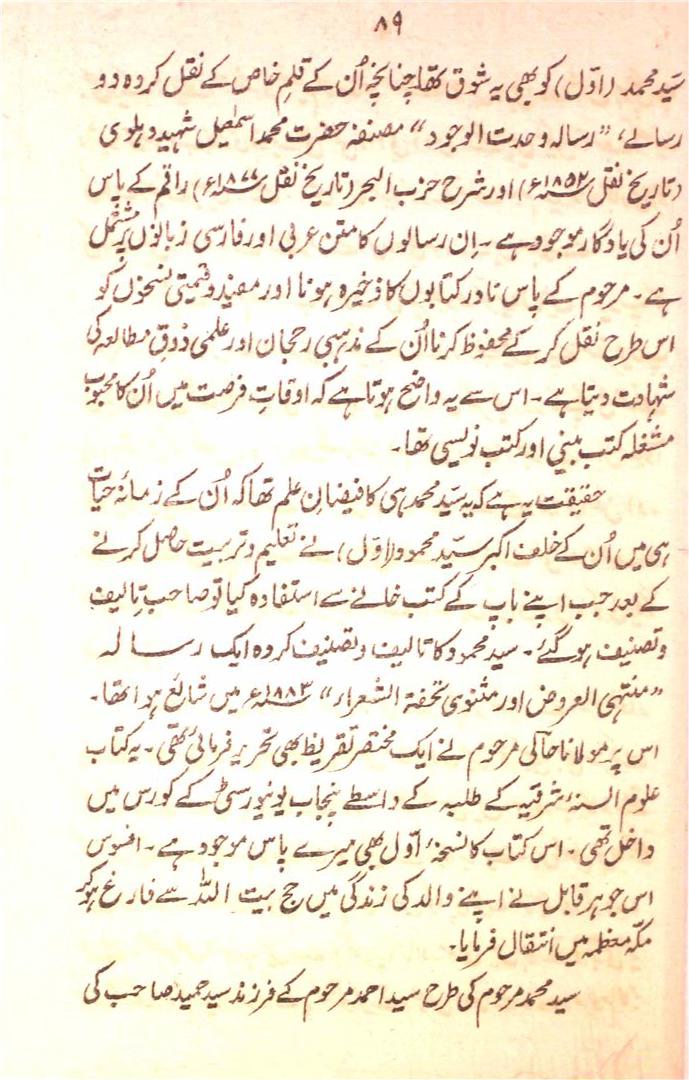 ۸۹
سَیّد محمد (اوّل) کو بھی یہ شوق تھا چنانچہ اُن کے قلمِ خاص کے نقل کردہ دو
رسالے، "رسالہ وحدت الوجود" مصنفہ حضرت محمد اسمٰعیل شہید دہلوی
(تاریخ نقل ۱۸۵۲ء) اور شرح حزب البحر (تاریخ نقل ۱۸۷۷ء) راقم کے پاس
اُن کی یادگار موجود ہے۔ اِن رسالوں کا متن عربی اور فارسی زبانوں پر مشتمل
ہے۔ مرحوم کے پاس نادر کتابوں کا ذخیرہ ہونا اور مفید و قیمتی نسخوں کو
اس طرح نقل کر کے محفوظ کرنا اُن کے مذہبی رحجان اور علمی ذوقِ مطالعہ کی
شہادت دیتا ہے۔ اس سے یہ واضح ہوتا ہے کہ اوقاتِ فرصت میں اُن کا محبوب
مشغلہ کتب بینی اور کتب نویسی تھا۔
حقیقت یہ ہے کہ یہ سَیّد محمد ہی کا فیضانِ علم تھا کہ اُن کے زمانۂ حیات
ہی میں اُن کے خلف اکبر سَیّد محمود (اوّل) نے تعلیم و تربیت حاصل کرنے
کے بعد جب اپنے باپ کے کتب خانے سے استفادہ کیا تو صاحبِ تالیف
و تصنیف ہو گئے۔ سید محمود کا تالیف و تصنیف کردہ ایک رسالہ
"منتہی العروض اور مثنوی تحفۃ الشعراء" ۱۸۸۳ء میں شائع ہوا تھا۔
اس پر مولانا حالی مرحوم نے ایک مختصر تقریظ بھی تحریر فرمائی تھی۔ یہ کتاب
علوم السنۂ شرقیہ کے طلبہ کے واسطے پنجاب یونیورسٹی کے کورس میں
داخل تھی۔ اس کتاب کا نسخۂ اوّل بھی میرے پاس موجود ہے۔ افسوس
اس جوہرِ قابل نے اپنے والد کی زندگی میں حج بیت اللہ سے فارغ ہو کر
مکّہ معظمہ میں انتقال فرمایا۔
سید محمد مرحوم کی طرح سید احمد مرحوم کے فرزند سید حمید صاحب کی